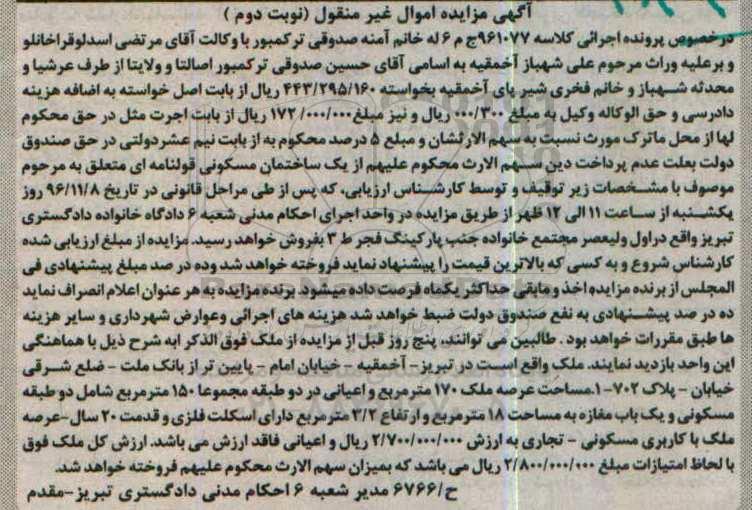 آگهی مزایده اموال غیر منقول (نوبت دوم )
در خصوص پرونده اجرائی کلاسه ۹۶۱۰۷۷ج م ۶ له خانم آمنه صدوقی ترکمبور با وکالت آقای مرتضی اسدلوقراخانلو
و برعلیه وراث مرحوم علی شهباز آخمقیه به اسامی آقای حسین صدوقی ترکمبور اصالتا و ولایتا از طرف عرشیا و
محدثه شهباز و خانم فخری شیر پای آخمقیه بخواسته ۴۴۳/۲۹۵/۱۶۰ ریال از بابت اصل خواسته به اضافه هزینه
دادرسی و حق الوکاله وکیل به مبلغ ۰۰۰/۳۰۰ ریال و نیز مبلغ ۱۷۲/۰۰۰/۰۰۰ ریال از بابت اجرت مثل در حق محکوم
لها از محل ماترک مورث نسبت به سهم الارثشان و مبلغ ۵ درصد محکوم به از بابت نیم عشردولتی در حق صندوق
دولت بعلت عدم پرداخت دین سهم الارث محکوم علیهم از یک ساختمان مسکونی قولنامه ای متعلق به مرحوم
موصوف با مشخصات زیر توقیف و توسط کارشناس ارزیابی، که پس از طی مراحل قانونی در تاریخ ۹۶/۱۱/۸ روز
یکشنبه از ساعت ۱۱ الی ۱۲ ظهر از طریق مزایده در واحد اجرای احکام مدنی شعبه ۶ دادگاه خانواده دادگستری
تبریز واقع دراول ولیعصر مجتمع خانواده جنب پارکینگ فجر ط ۳ بفروش خواهد رسید. مزایده از مبلغ ارزیابی شده
کارشناس شروع و به کسی که بالاترین قیمت را پیشنهاد نماید فروخته خواهد شد وده در صد مبلغ پیشنهادی فی
المجلس از برنده مزایده اخذ و مابقی حداکثر یکماه فرصت داده میشود. برنده مزایده به هر عنوان اعلام انصراف نماید
ده در صد پیشنهادی به نفع صندوق دولت ضبط خواهد شد هزینه های اجرائی وعوارض شهرداری و سایر هزینه
ها طبق مقررات خواهد بود . طالبین می توانند، پنج روز قبل از مزایده از ملک فوق الذکر ابه شرح ذیل با هماهنگی
این واحد بازدید نمایند. ملک واقع است در تبریز- آخمقیه - خیابان امام - پایین تر از بانک ملت - ضلع شرقی
خیابان - پلاک ۷۰۲-۱.مساحت عرصه ملک ۱۷۰ مترمربع و اعیانی در دو طبقه مجموعا ۱۵۰ مترمربع شامل دو طبقه
مسکونی و یک باب مغازه به مساحت ۱۸ مترمربع و ارتفاع ۳/۲ مترمربع دارای اسکلت فلزی و قدمت ۲۰ سال-عرصه
ملک با کاربری مسکونی - تجاری به ارزش ۲/۷۰۰/۰۰۰/۰۰۰ ریال و اعیانی فاقد ارزش می باشد. ارزش کل ملک فوق
با لحاظ امتیازات مبلغ ۲/۸۰۰/۰۰۰/۰۰۰ ریال می باشد که بمیزان سهم الارث محکوم علیهم فروخته خواهد شد.
ح/۶۷۶۶ مدیر شعبه ۶ احکام مدنی دادگستری تبریز-مقدم